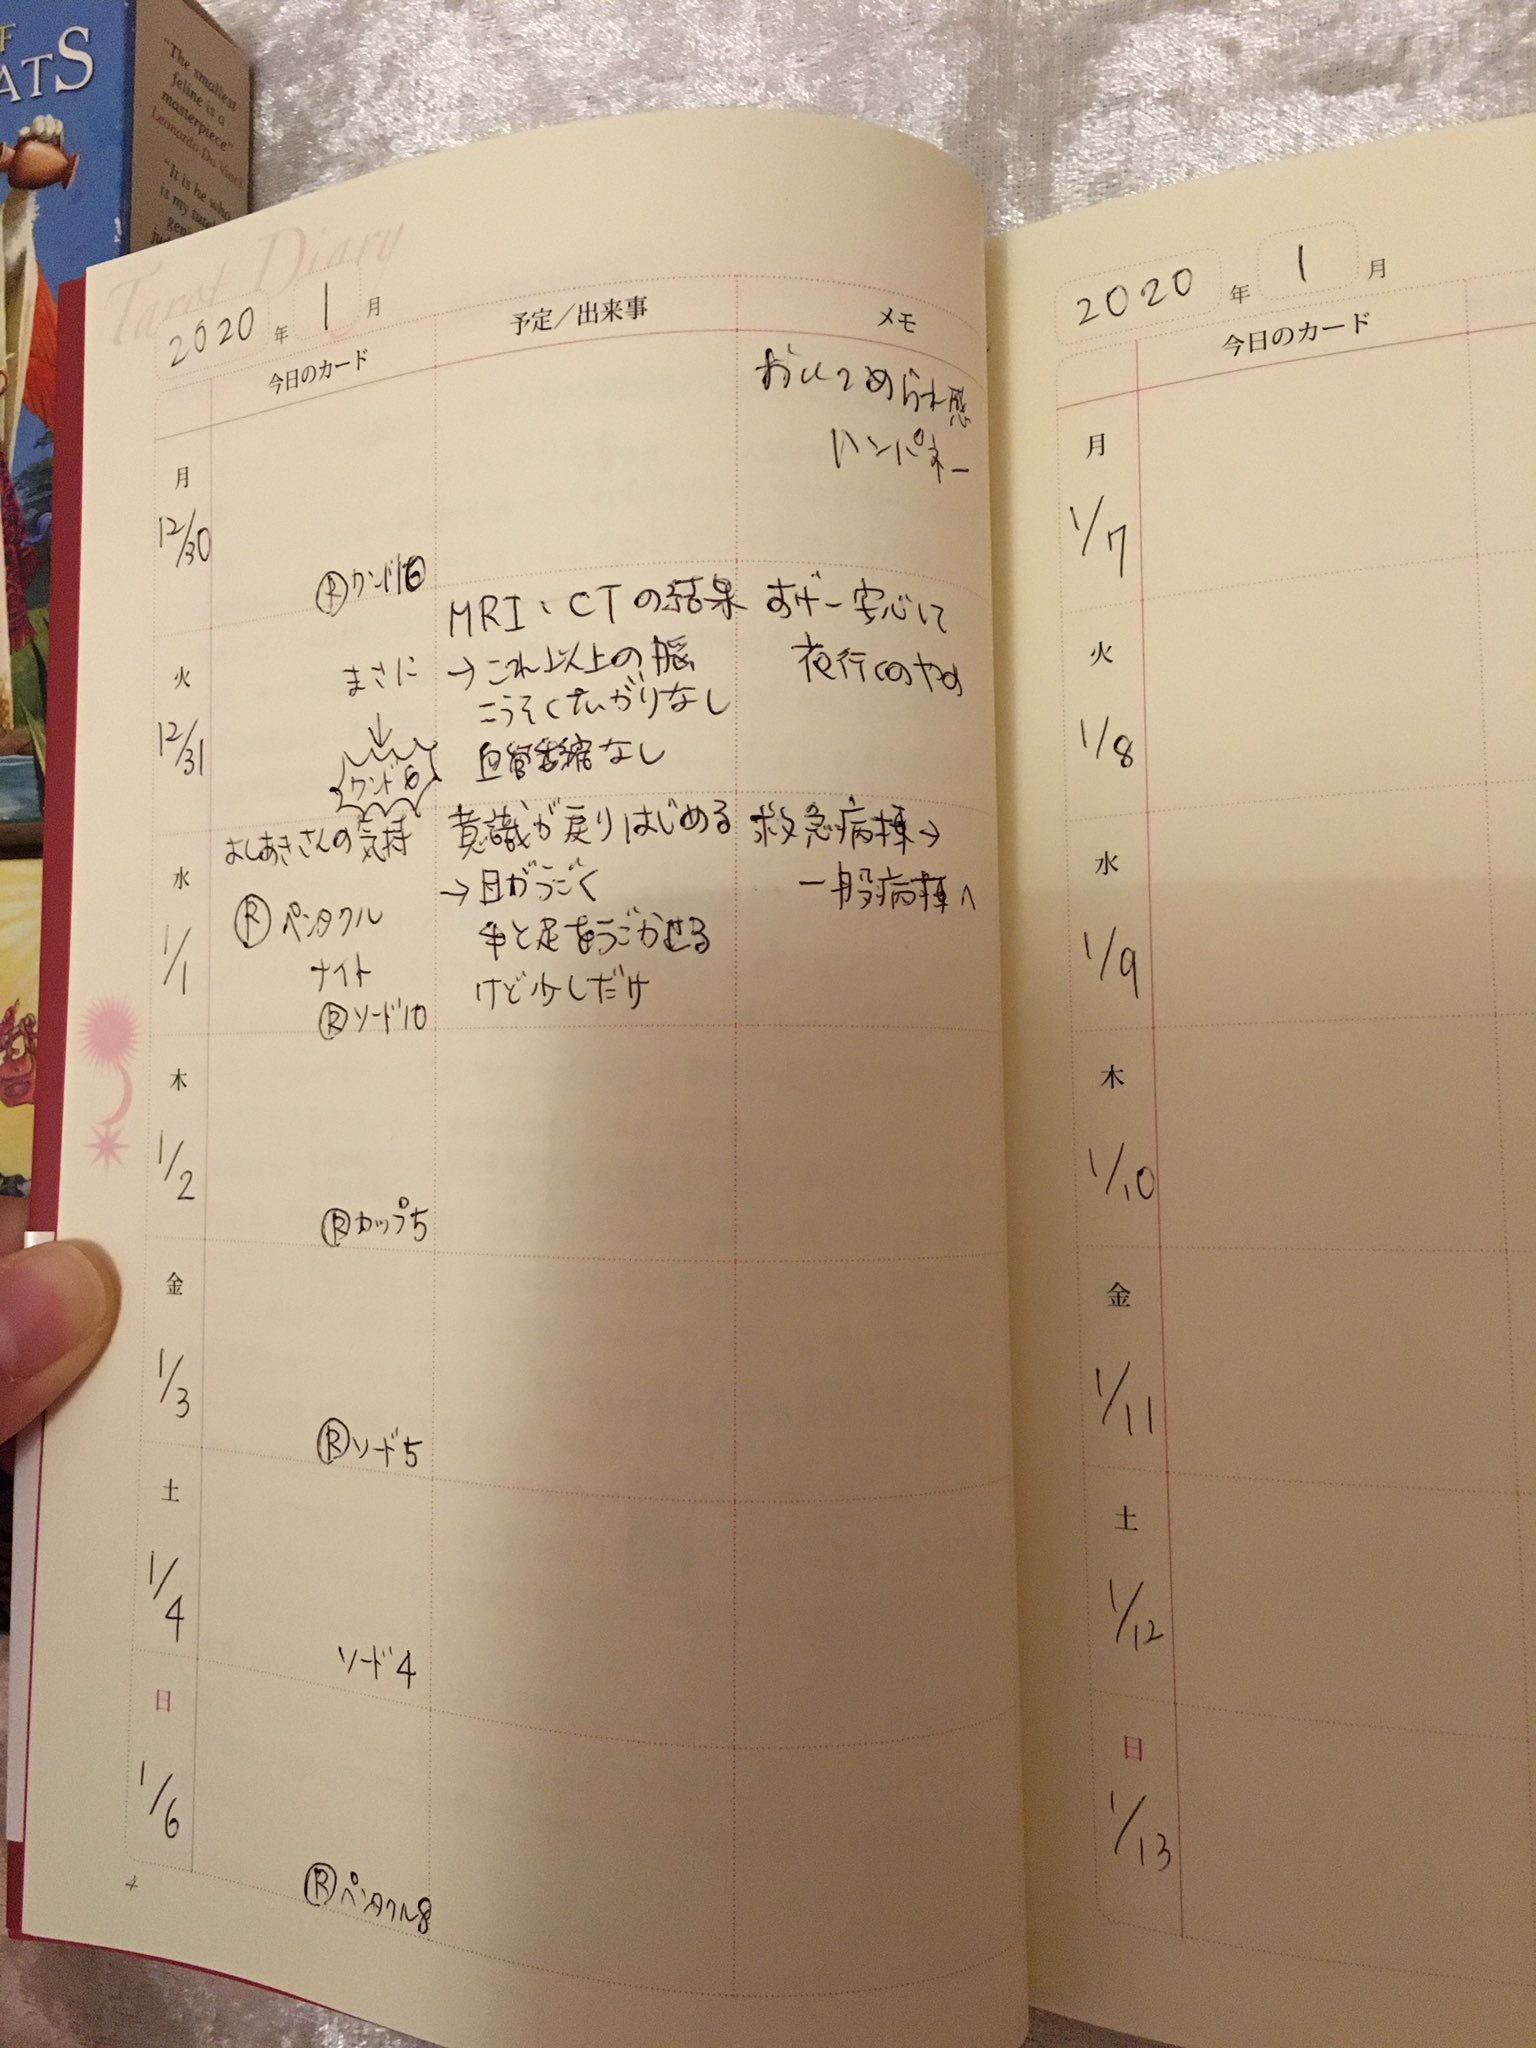 F
ATS
"The smallest
feline is a
masterpiece"
Leonardo Da Vinci
"It is he who
is my
Tarot Diary
2020年 1月
今日のカード
予定／出来事
メモ
月
12/30
Ⓡワンド10
おいつめられ感
ハンパネー
火
12/31
まさに
↓
ワンド6
MRI、CTの結果
→これ以上の脳
こうそくたいがりなし
血管なし
すげー安心して
夜行くのやめ
水
1/1
よしあきさんの気持
Ⓡペンタクル
ナイト
Ⓡソード10
意識が戻りはじめる
→目がうごく
手と足をうごかせる
けど少しだけ
救急病棟→
一般病棟へ
木
1/2
Ⓡカップ5
金
1/3
Ⓡソード5
土
1/4
ソード4
日
1/6
Ⓡペンタクル8
4
2020年 1月
今日のカード
月
1/7
火
1/8
水
1/9
木
1/10
金
1/11
土
1/12
日
1/13